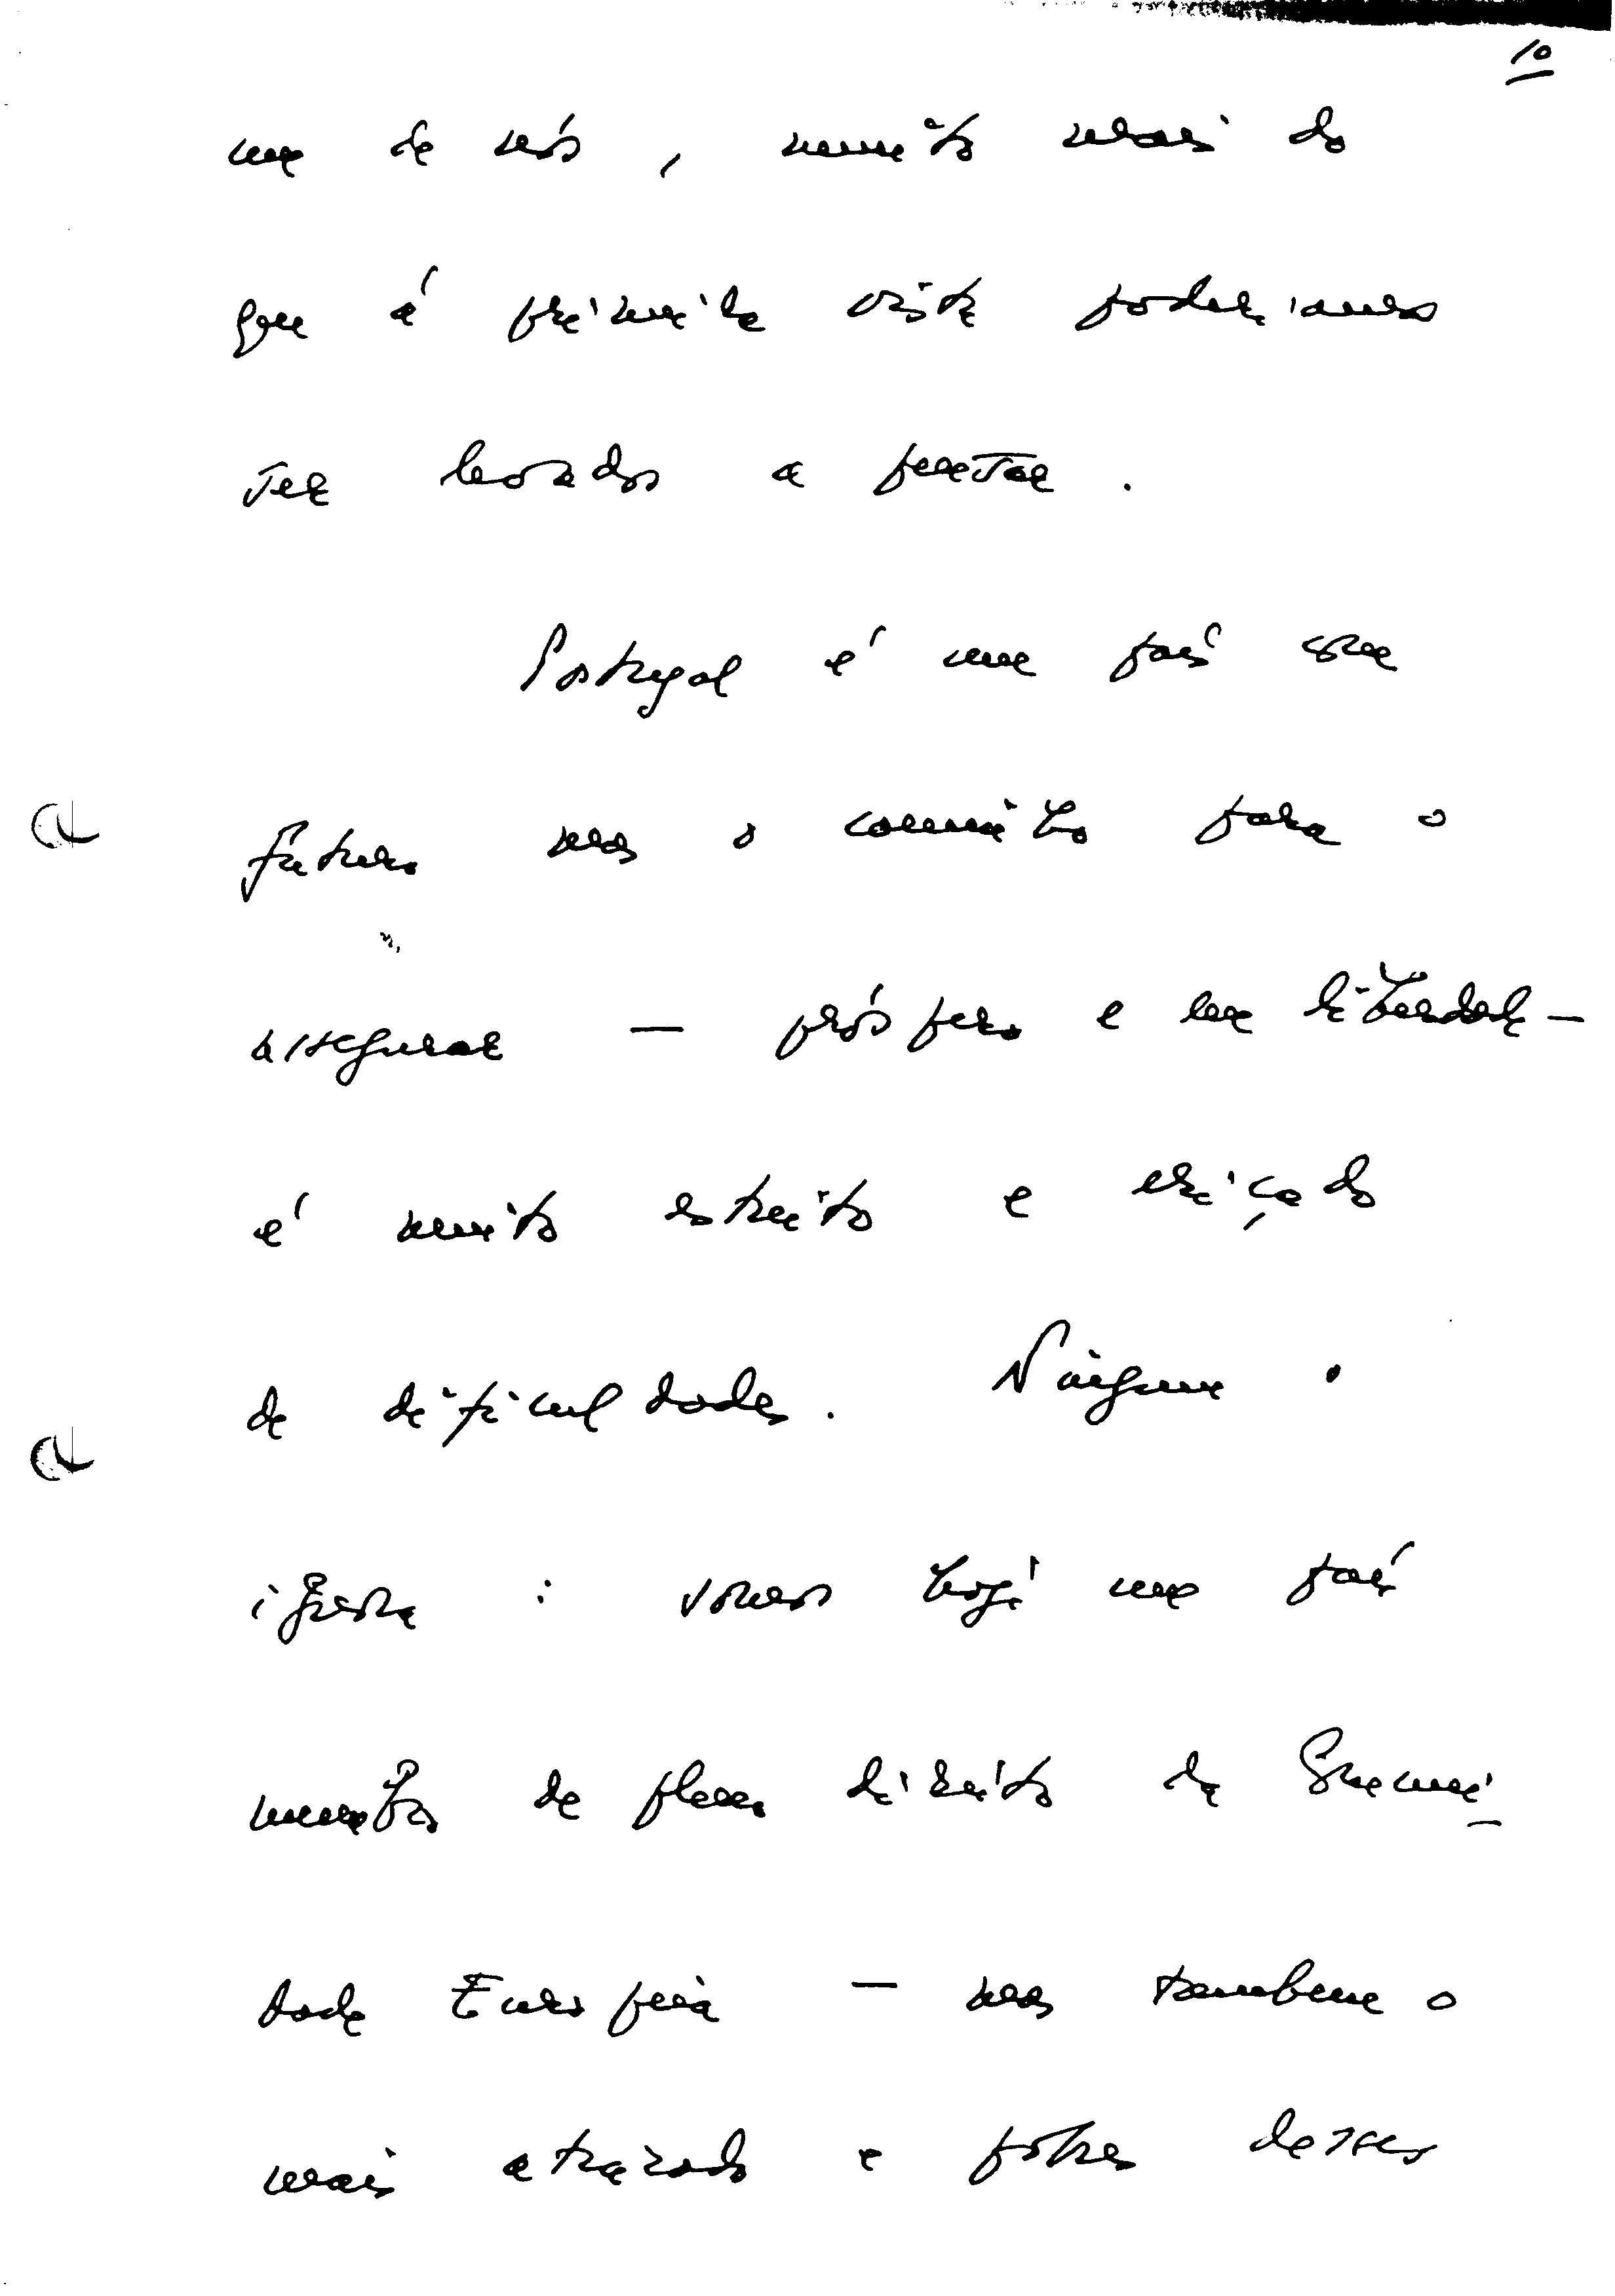 10
um de nós, muito mais do
que á primeira vista poderiamos
ser levados a pensar.
Portugal é um país com
futuro mas o caminho para o
assegurar — próspero e em liberdade —
é muito estreito e eriçado
de dificuldades. Ninguem o
ignora : somos hoje um país
membro de pleno direito da Comuni-
dade Europeia — mas tambem o
mais atrazado e pobre desses